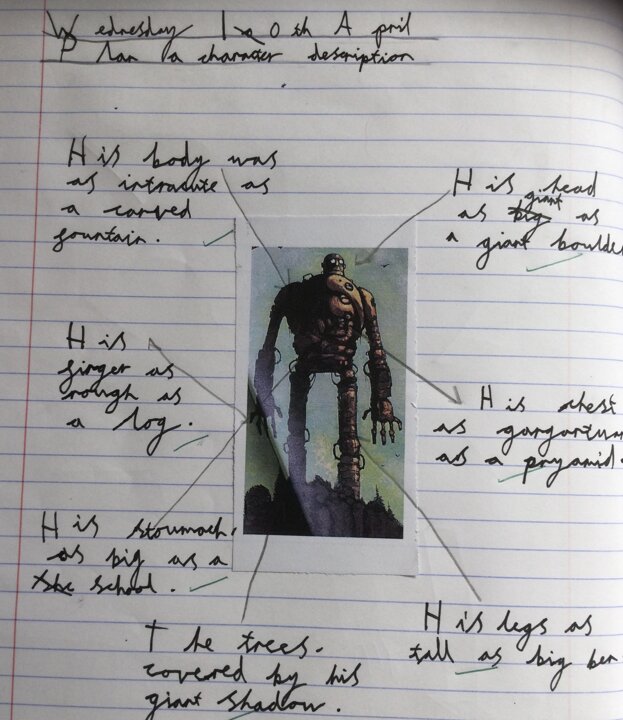 Wednesday 10th April
Plan a character description
His body was
as intracute as
a carved
fountain.
His head
as giant as
a giant boulder
His
finger as
rough as
a log.
His chest
as gargartum
as a pryamid.
His stoumach.
as big as a
school.
His legs as
tall as big ben
The trees.
covered by his
giant shadow.